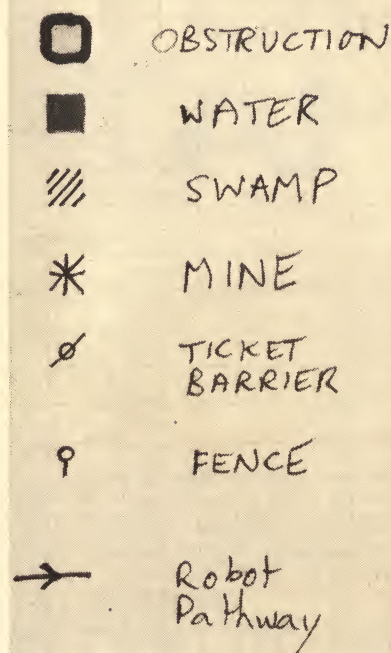 OBSTRUCTION
WATER
SWAMP
MINE
TICKET
BARRIER
FENCE
Robot
Pathway